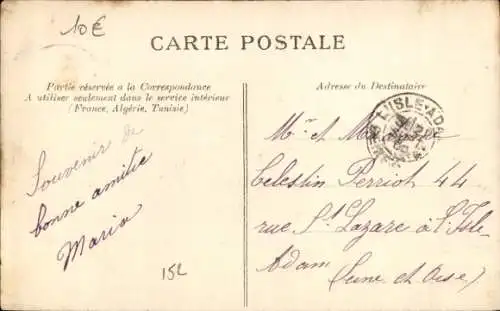 10€
CARTE POSTALE
Partie réservée a la Correspondance
A utiliser seulement dans le service intérieur
(France, Algérie, Tunisie)
Adresse du Destinataire
L'ISLE-ADAM
Souvenir de
bonne amitié
Maria
Mr et Mme
Celestin Perriot 44
rue St Lazare à l'Isle
Adam (Seine et Oise)
152